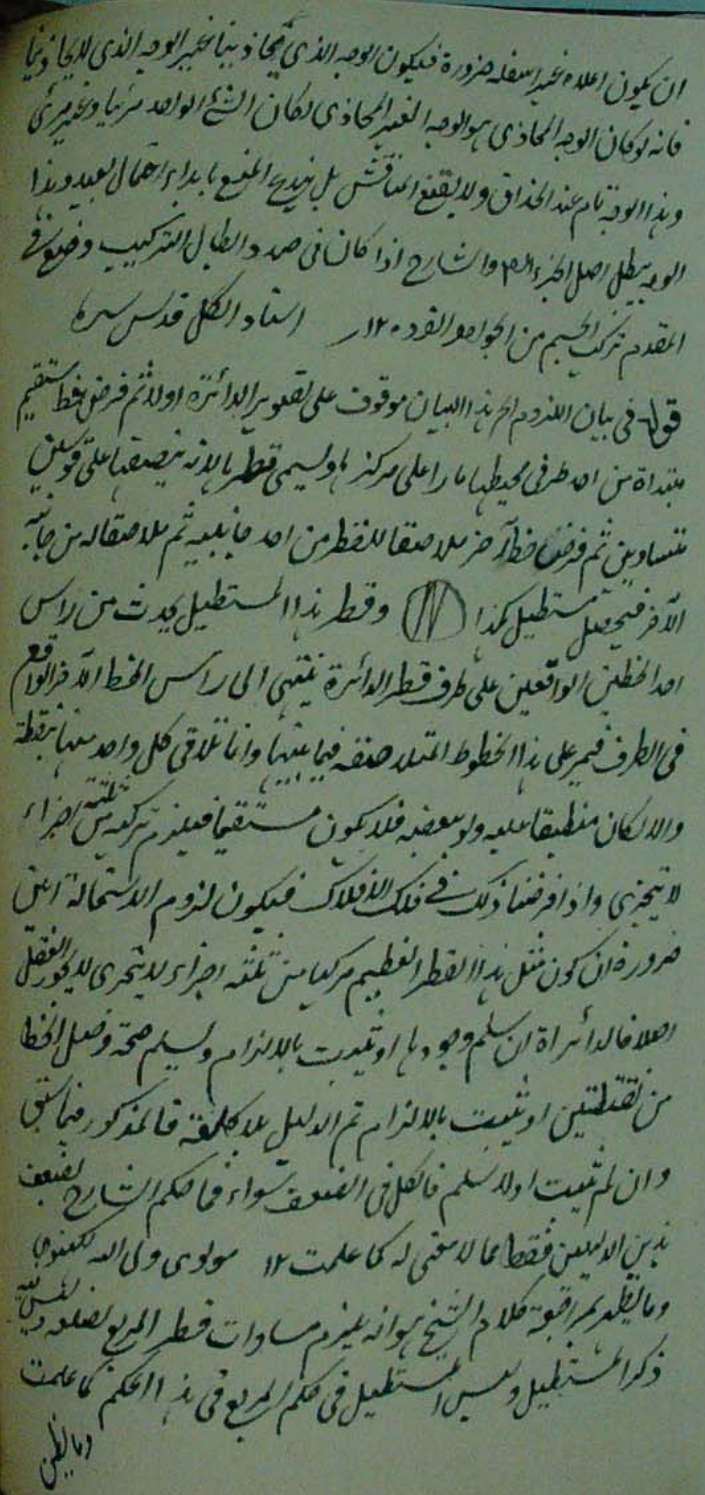 ان يكون اعلاه غير اسفله ضرورة فيكون الوجه الذى يحاذينا غير الوجه الذى لا يحاذينا
فانه لو كان الوجه المحاذى هو الوجه الغير المحاذى لكان الشئ الواحد مرئيا وغير مرئى
وهذا الوجه تام عند الحذاق ولا يقنع المناقش بل يفيده المنع بابداء احتمال بعيد وهذا
الوجه يبطل اصل الجزء والشارح اذا كان فى صدد ابطال التركيب وضع فى
المقدم تركب الجسم من الجواهر الفردة ١٢ استاد الكل قدس سره
قوله فى بيان اللزوم الخ هذا البيان موقوف على تصوير الدائرة اولا ثم فرض خط مستقيم
مبتدأة من احد طرفى محيطها مارا على مركزها ويسمى قطرها لانه ينصفها على قوسين
متساويين ثم فرض خط آخر ملاصقا للخط من احد جانبيه ثم ملاصقا له من جانبه
الآخر فيحصل مستطيل هكذا وقطر هذا المستطيل يحدث من راس
احد الخطين الواقعين على طرف قطر الدائرة ينتهى الى راس الخط الآخر الواقع
فى الطرف فيمر على هذا الخطوط المتلاصقة فيما بينها وانما تلاقى كل واحد منها بنقطة
والا لكان منطبقا عليه ولو ببعضه فلا يكون مستقيما فيلزم تركبه من ثلثة اجزاء
لا يتجزى واذا فرضنا ذلك فى فلك الافلاك فيكون لزوم الاستحالة ابين
ضرورة ان كون مثل هذا القطر العظيم مركبا من ثلثه اجزاء لا يتجزى لا يجوزه العقل
اصلا فالدائراة ان سلم وجودها او تثبت بالالزام وليسلم صحة وصل الخط
من نقطتين او تثبت بالالزام تم الدليل بلا كلفة فالمذكور فيما سبق
وان لم تثبت اولا سلم فالكل فى الضعف سواء فما حكم الشارح بضعف
هذين الدليلين فقط مما لا معنى له كما علمت ١٢ مولوى ولى الله لكهنوى
وما يظهر بمراقبة كلام الشيخ هو انه يلزم مساوات قطر المربع لضلعه وليس فيه
ذكر المستطيل وليس المستطيل فى حكم المربع فى هذا الحكم كما علمت
وما يظن